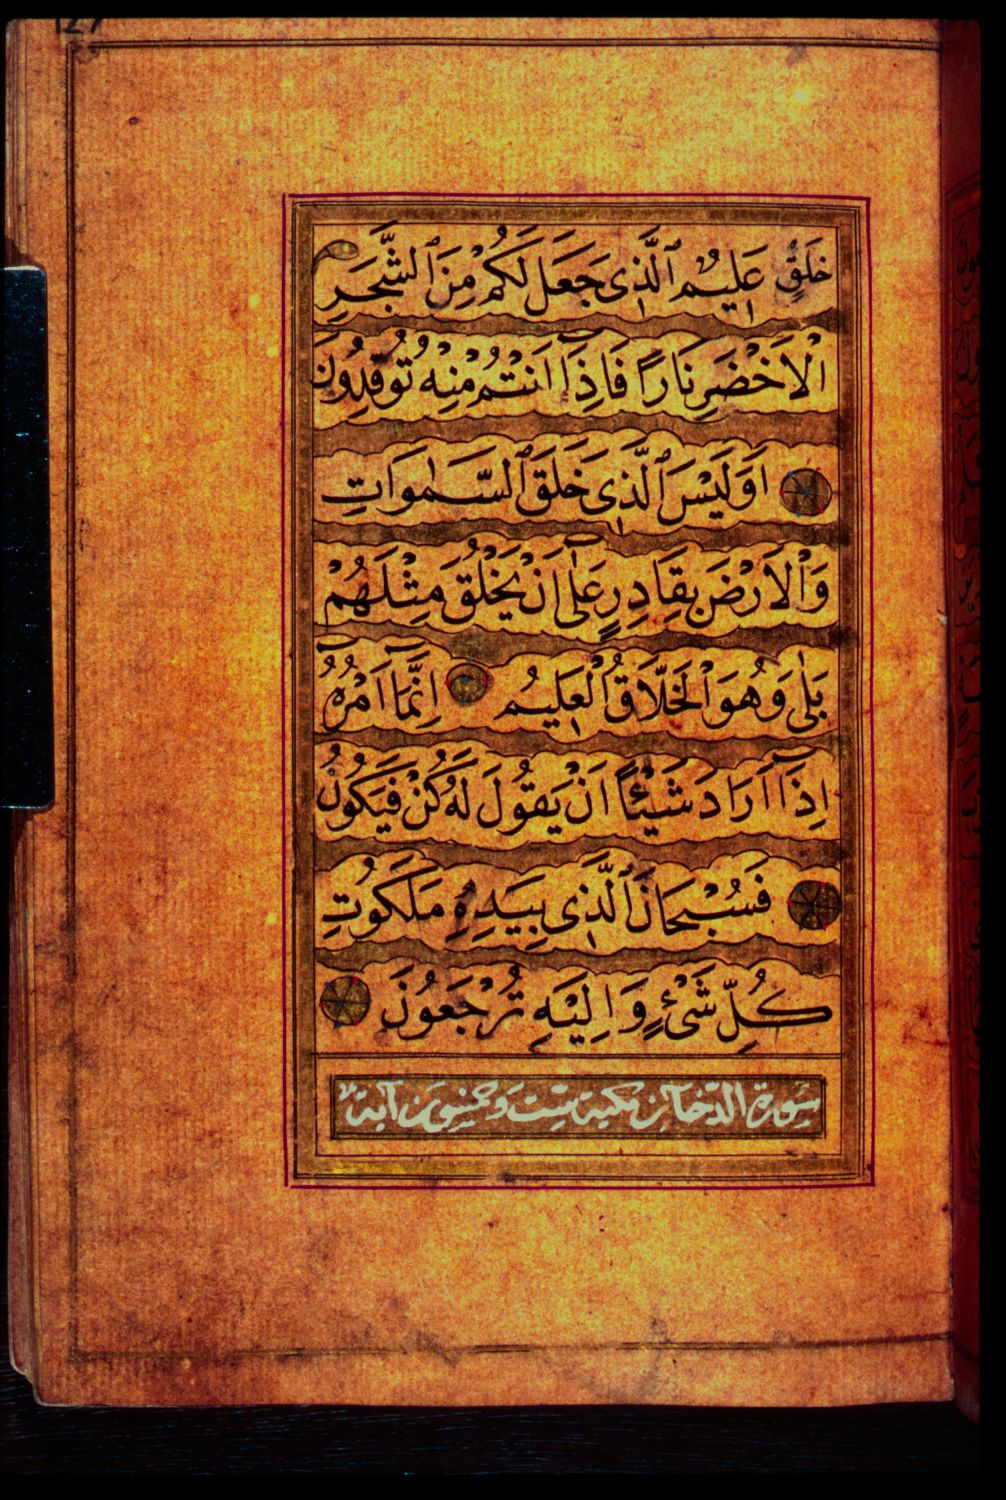 127
خَلْقٍ عَلِيمٌ ٱلَّذِى جَعَلَ لَكُمْ مِنَ ٱلشَّجَرِ
الْاَخْضَرِ نَارًا فَاِذَآ اَنْتُمْ مِنْهُ تُوقِدُونَ
اَوَلَيْسَ ٱلَّذِى خَلَقَ ٱلسَّمٰوَاتِ
وَالْاَرْضَ بِقَادِرٍ عَلٰٓى اَنْ يَخْلُقَ مِثْلَهُمْ
بَلٰى وَهُوَ الْخَلَّاقُ الْعَلِيمُ اِنَّمَآ اَمْرُهُٓ
اِذَآ اَرَادَ شَيْئًا اَنْ يَقُولَ لَهُ كُنْ فَيَكُونُ
فَسُبْحَانَ ٱلَّذِى بِيَدِهِ مَلَكُوتُ
كُلِّ شَىْءٍ وَاِلَيْهِ تُرْجَعُونَ
سورة الدخان مكية ست وخمسون آية